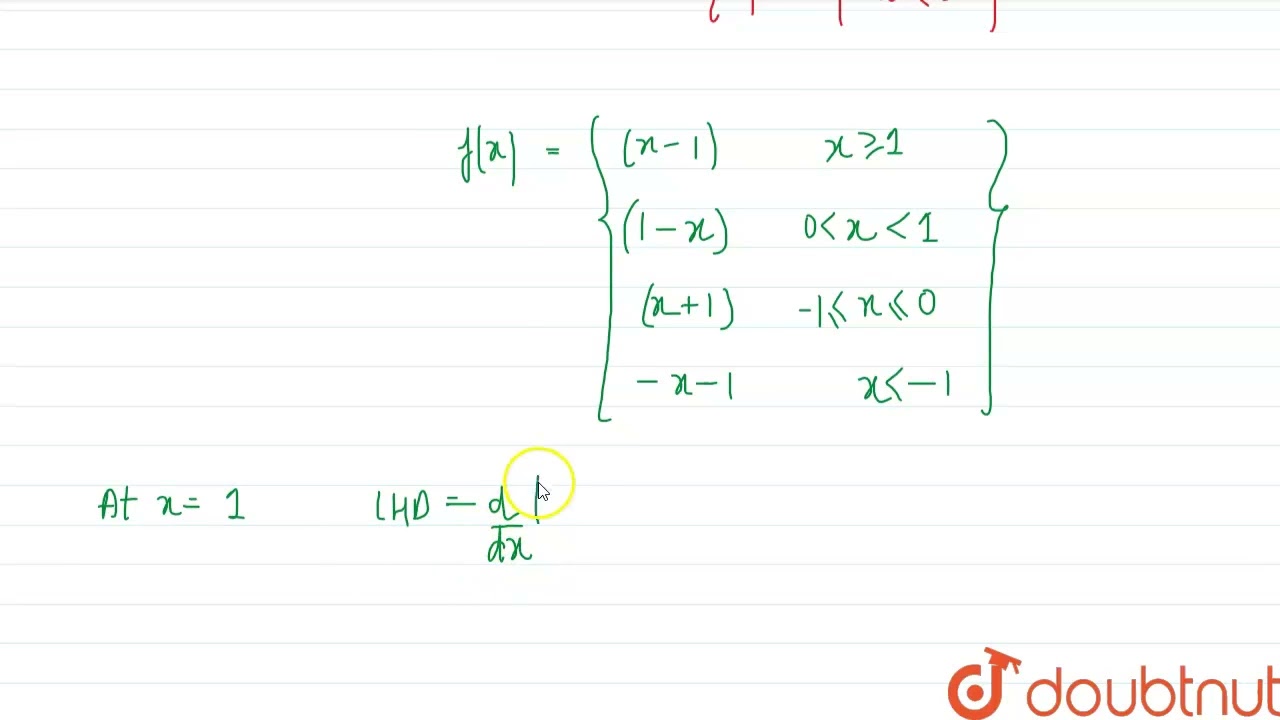 f(x) = { (x-1) x ≥ 1
(1-x) 0 < x < 1
(x+1) -1 ≤ x ≤ 0
-x-1 x ≤ -1 }
At x = 1 LHD = d/dx (
doubtnut